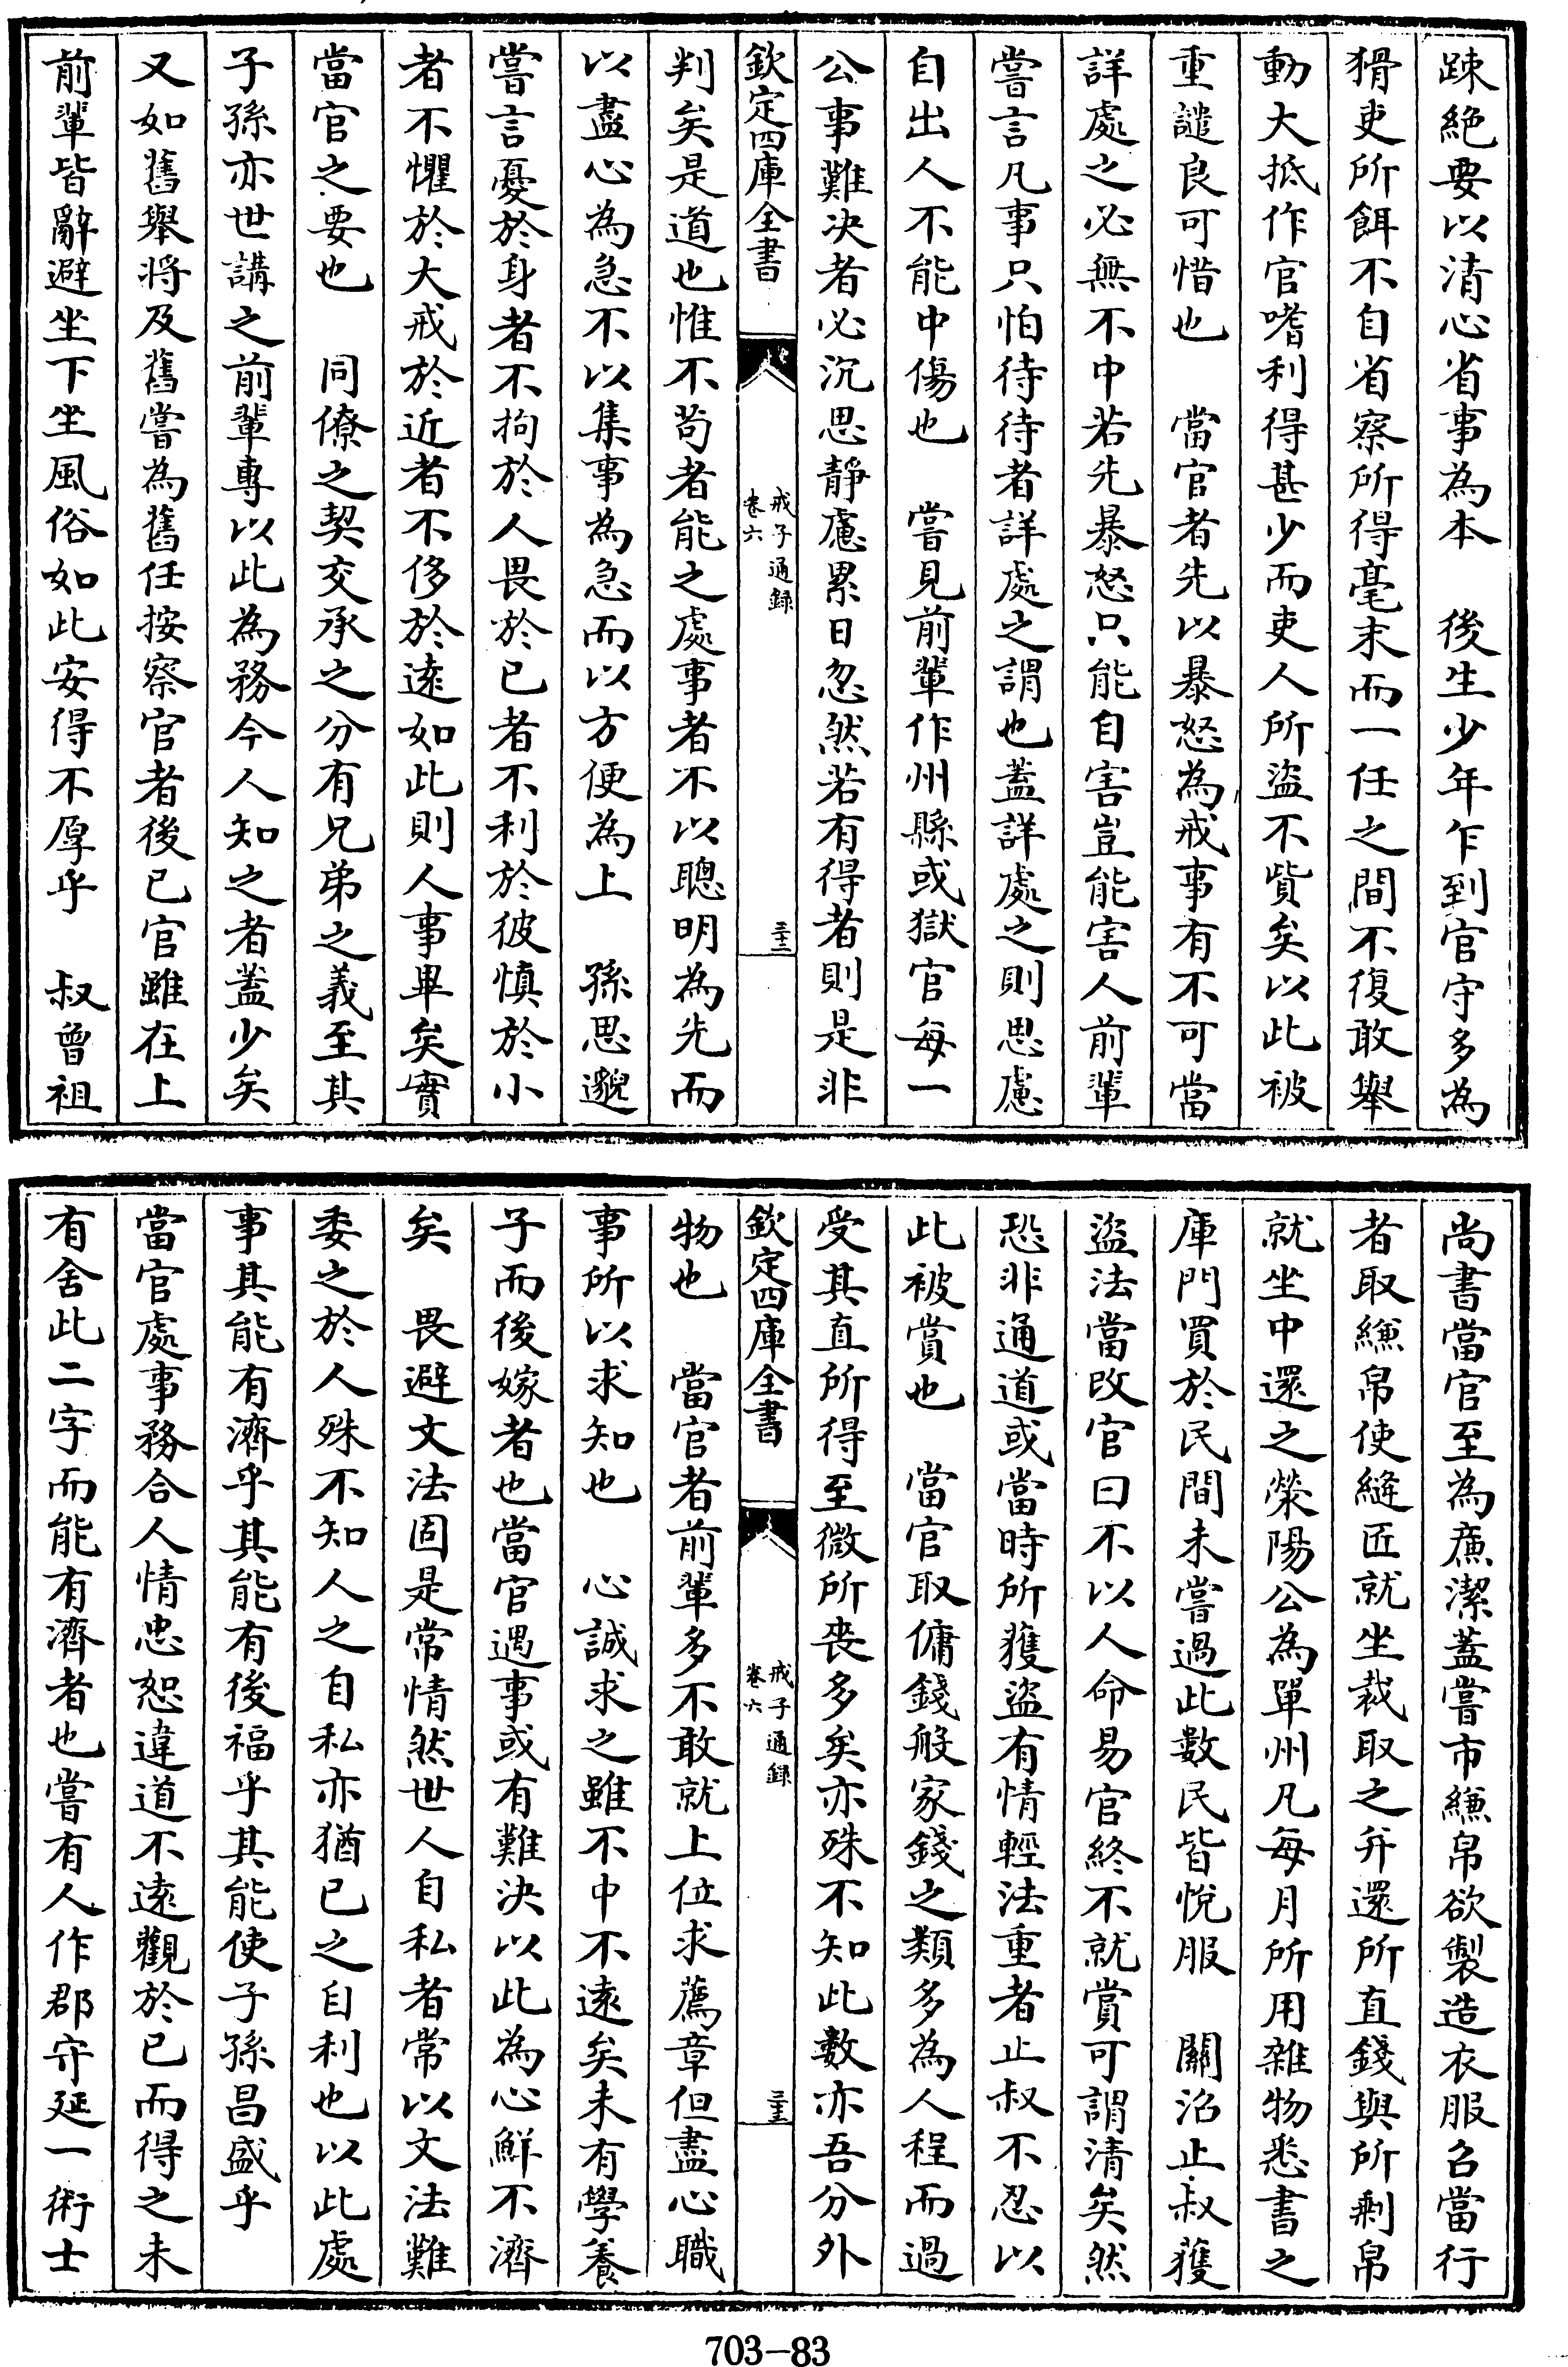 踈絶要以清心省事為本　後生少年乍到官守多為
猾吏所餌不自省察所得毫末而一任之間不復敢舉
動大抵作官嗜利得甚少而吏人所盜不貲矣以此被
重譴良可惜也　當官者先以暴怒為戒事有不可當
詳處之必無不中若先暴怒只能自害豈能害人前輩
嘗言凡事只怕待待者詳處之謂也蓋詳處之則思慮
自出人不能中傷也　嘗見前輩作州縣或獄官每一
公事難决者必沉思靜慮累日忽然若有得者則是非
欽定四庫全書
戒子通録
卷六
三十二
判矣是道也惟不苟者能之處事者不以聰明為先而
以盡心為急不以集事為急而以方便為上　孫思邈
嘗言憂於身者不拘於人畏於已者不利於彼慎於小
者不懼於大戒於近者不侈於遠如此則人事畢矣實
當官之要也　同僚之契交承之分有兄弟之義至其
子孫亦世講之前輩專以此為務今人知之者蓋少矣
又如舊舉將及舊嘗為舊任按察官者後已官雖在上
前輩皆辭避坐下坐風俗如此安得不厚乎　叔曾祖
尚書當官至為亷潔蓋嘗市縑帛欲製造衣服召當行
者取縑帛使縫匠就坐裁取之并還所直錢與所剰帛
就坐中還之滎陽公為單州凡每月所用雜物悉書之
庫門買於民間未嘗過此數民皆悅服　關沼止叔獲
盜法當改官曰不以人命易官終不就賞可謂清矣然
恐非通道或當時所獲盜有情輕法重者止叔不忍以
此被賞也　當官取傭錢般家錢之類多為人程而過
受其直所得至微所丧多矣亦殊不知此數亦吾分外
欽定四庫全書
戒子通録
卷六
三十三
物也　當官者前輩多不敢就上位求薦章但盡心職
事所以求知也　心誠求之雖不中不遠矣未有學養
子而後嫁者也當官遇事或有難決以此為心鮮不濟
矣　畏避文法固是常情然世人自私者常以文法難
委之於人殊不知人之自私亦猶已之自利也以此處
事其能有濟乎其能有後福乎其能使子孫昌盛乎
當官處事務合人情忠恕違道不遠觀於已而得之未
有舍此二字而能有濟者也嘗有人作郡守延一術士
703-83